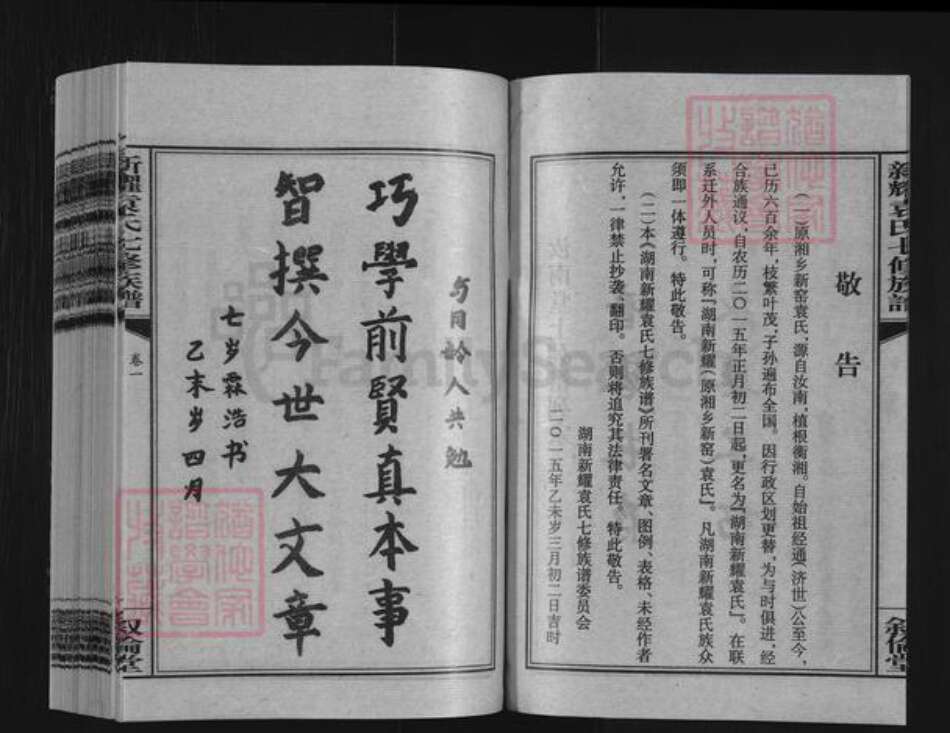 敬告
(一)原湘乡新窑袁氏,源自汝南,植根衡湘。自始祖经通(济世)公至今,
已历六百余年,枝繁叶茂,子孙遍布全国。因行政区划更替,为与时俱进,经
合族通议,自农历二〇一五年正月初二日起,更名为『湖南新耀袁氏』。在联
系迁外人员时,可称『湖南新耀(原湘乡新窑)袁氏』。凡湖南新耀袁氏族众
须即一体遵行。特此敬告。
(二)本《湖南新耀袁氏七修族谱》所刊署名文章、图例、表格、未经作者
允许,一律禁止抄袭、翻印。否则将追究其法律责任。特此敬告。
湖南新耀袁氏七修族谱委员会
二〇一五年乙未岁三月初二日吉时
新耀袁氏七修族譜
敘倫堂
与同龄人共勉
巧學前賢真本事
智撰今世大文章
七岁霖浩书
乙未岁四月
新耀袁氏七修族譜
卷一
敘倫堂
FamilySearch